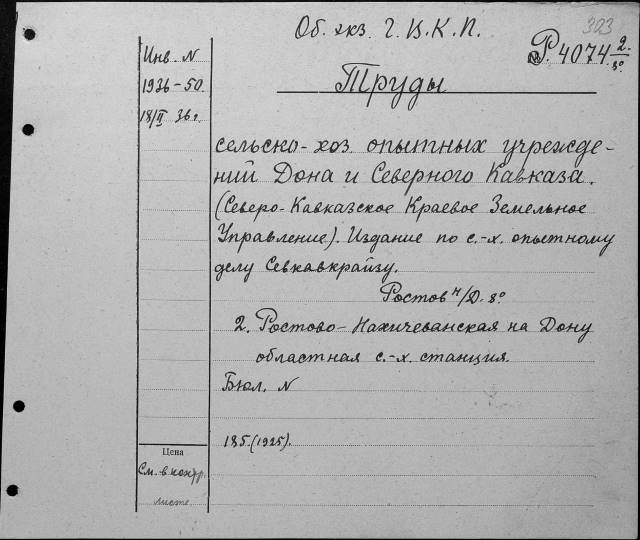 323
Об. экз. Г. В. К. П.
Р. 4074 2/8°
Инв. N
1936-50
18/II 36 г.
Труды
сельско-хоз. опытных учрежде-
ний Дона и Северного Кавказа.
(Северо-Кавказское Краевое Земельное
Управление). Издание по с.-х. опытному
делу Севкавкрайзу.
Ростов н/Д. 8°
2. Ростово-Нахичеванская на Дону
областная с.-х. станция.
Бюл. N
185.(1925).
Цена
См. в контр.
листе